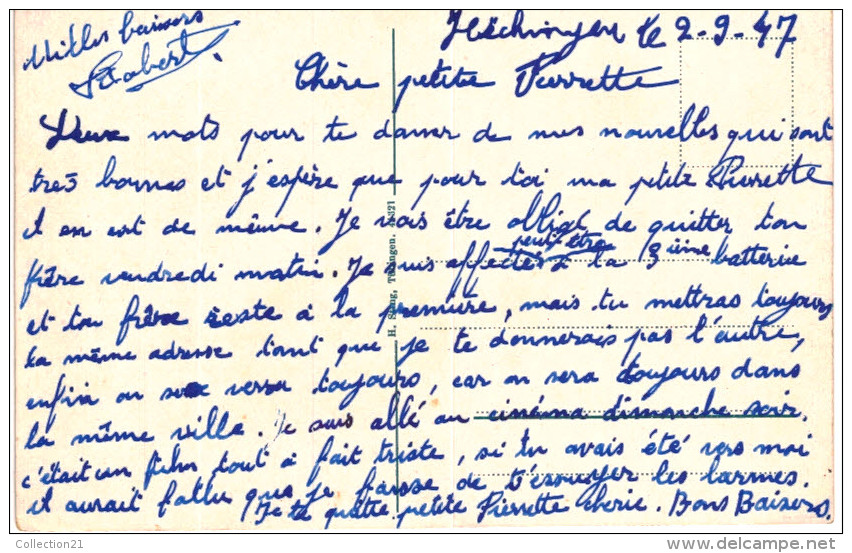 Héchingen le 2-9-47
Milles baisers
Robert
Chère petite Pierrette
Deux mots pour te donner de mes nouvelles qui sont
tres bonnes et j'espère que pour toi ma petite Pierrette
il en est de même. Je vais être obligé de quitter ton
frère vendredi matin. Je suis affecté peut être à la 3 ième batterie
et ton frère reste à la première, mais tu mettras toujours
la même adresse tant que je te donnerais pas l'autre,
enfin on se verra toujours, car on sera toujours dans
la même ville. Je suis allé au cinéma dimanche soir.
c'était un film tout à fait triste, si tu avais été vers moi
il aurait fallu que je fasse de t'essuyer les larmes.
Je te quitte petite Pierrette cherie. Bons Baisers.
H. Sting, Tübingen. 5321
Collection21
delcampe.net